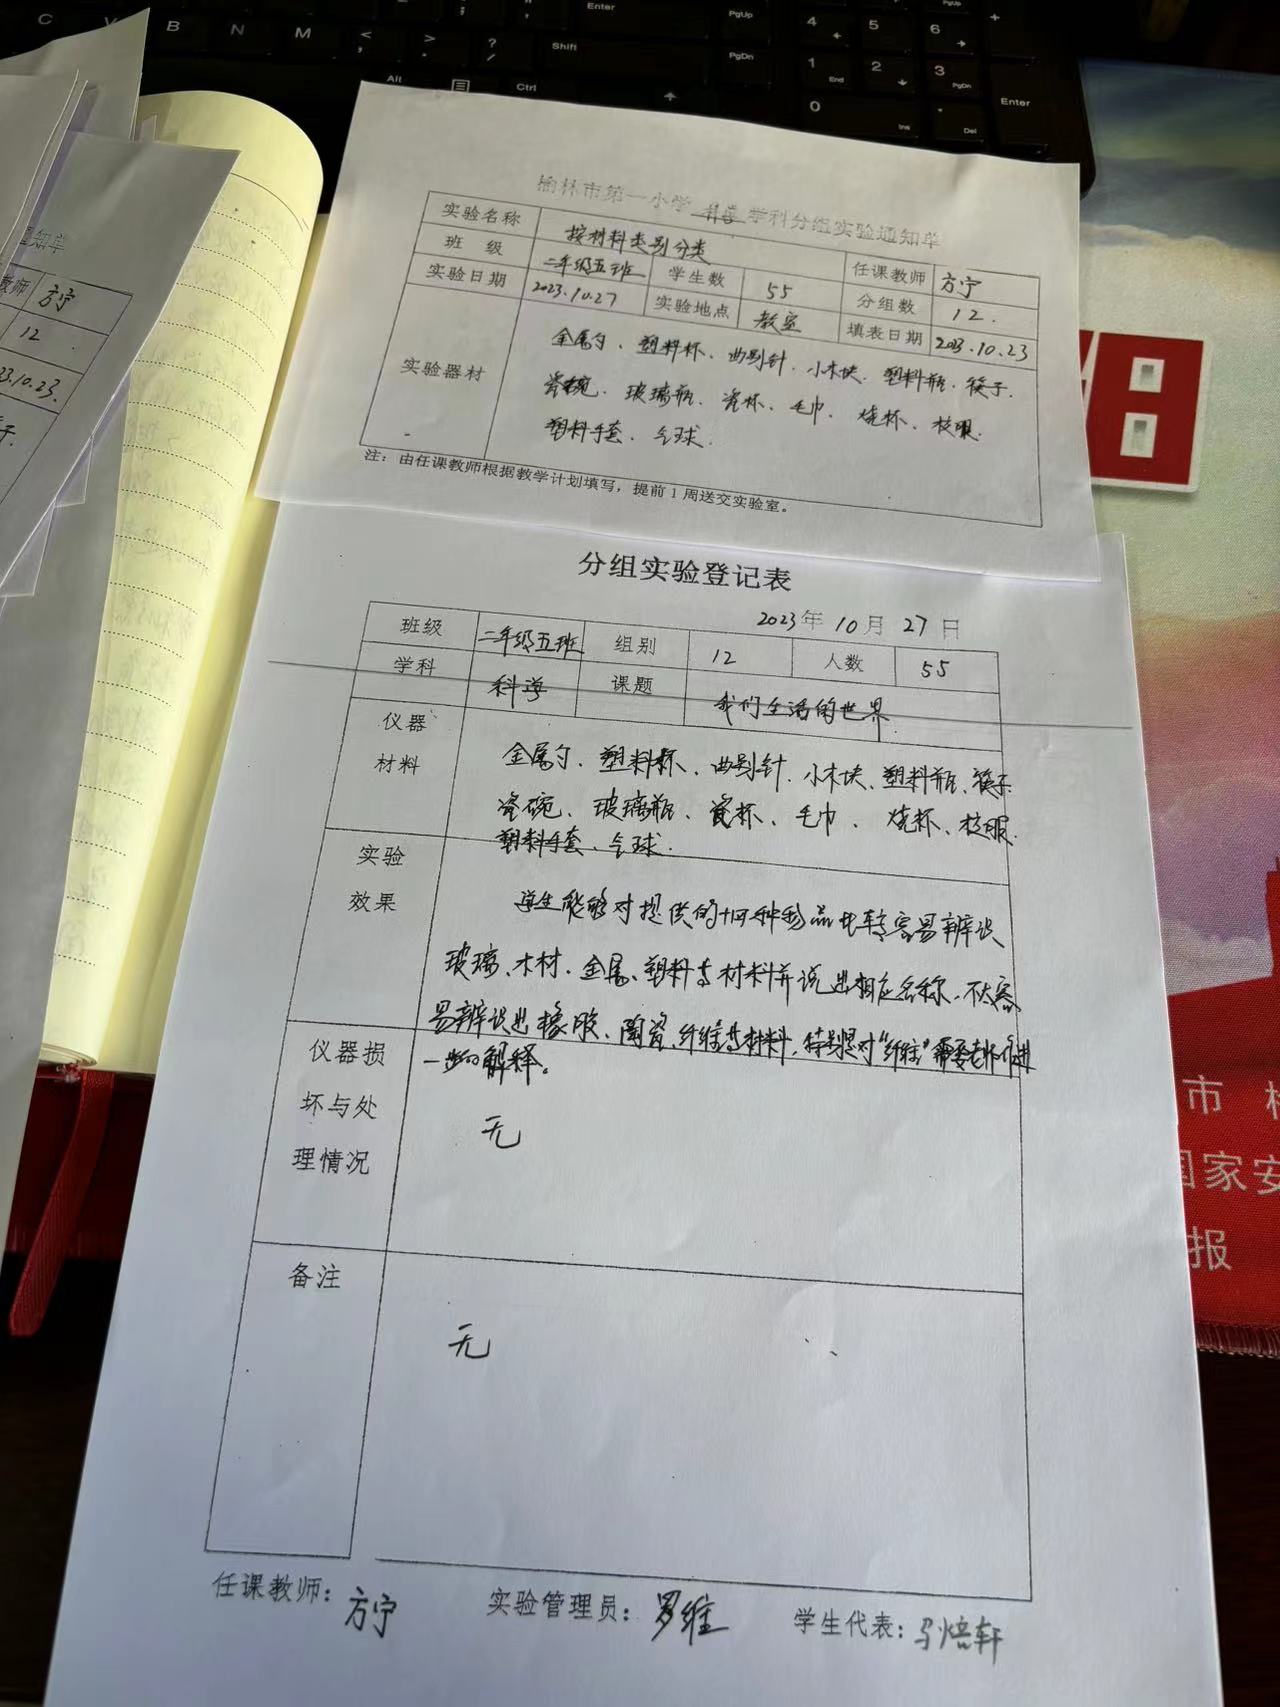 榆林市第一小学 科学 学科分组实验通知单
实验名称 按材料类别分类 任课教师 方宁
班 级 二年级五班 学生数 55 分组数 12.
实验日期 2023.10.27 实验地点 教室 填表日期 2023.10.23
实验器材
金属勺、塑料杯、曲别针、小木块、塑料瓶、筷子.
瓷碗、玻璃瓶、瓷杯、毛巾、烧杯、校服.
塑料手套、气球.
注：由任课教师根据教学计划填写，提前1周送交实验室。
分组实验登记表
2023年 10月 27日
班级 二年级五班 组别 12 人数 55
学科 科学 课题 我们生活的世界
仪器
材料
金属勺、塑料杯、曲别针、小木块、塑料瓶、筷子
瓷碗、玻璃瓶、瓷杯、毛巾、烧杯、校服.
塑料手套、气球.
实验
效果
学生能够对提供的十四种物品比较容易辨识
玻璃、木材、金属、塑料等材料并说出相应名称，不太容
易辨识出橡胶、陶瓷、纤维等材料，特别是对“纤维”需要老师进
一步的解释。
仪器损
坏与处
理情况
无
备注
无
任课教师：方宁 实验管理员：罗维 学生代表：马焙轩
知单
教师 方宁
12
3.10.23.
子.
市
国家安
报
C V B N M < , > . ? /
Enter
Shift
Alt
Ctrl
PgUp
PgDn
4 5 6
1 End 2 3 PgDn
0 Ins . Del
Enter
+